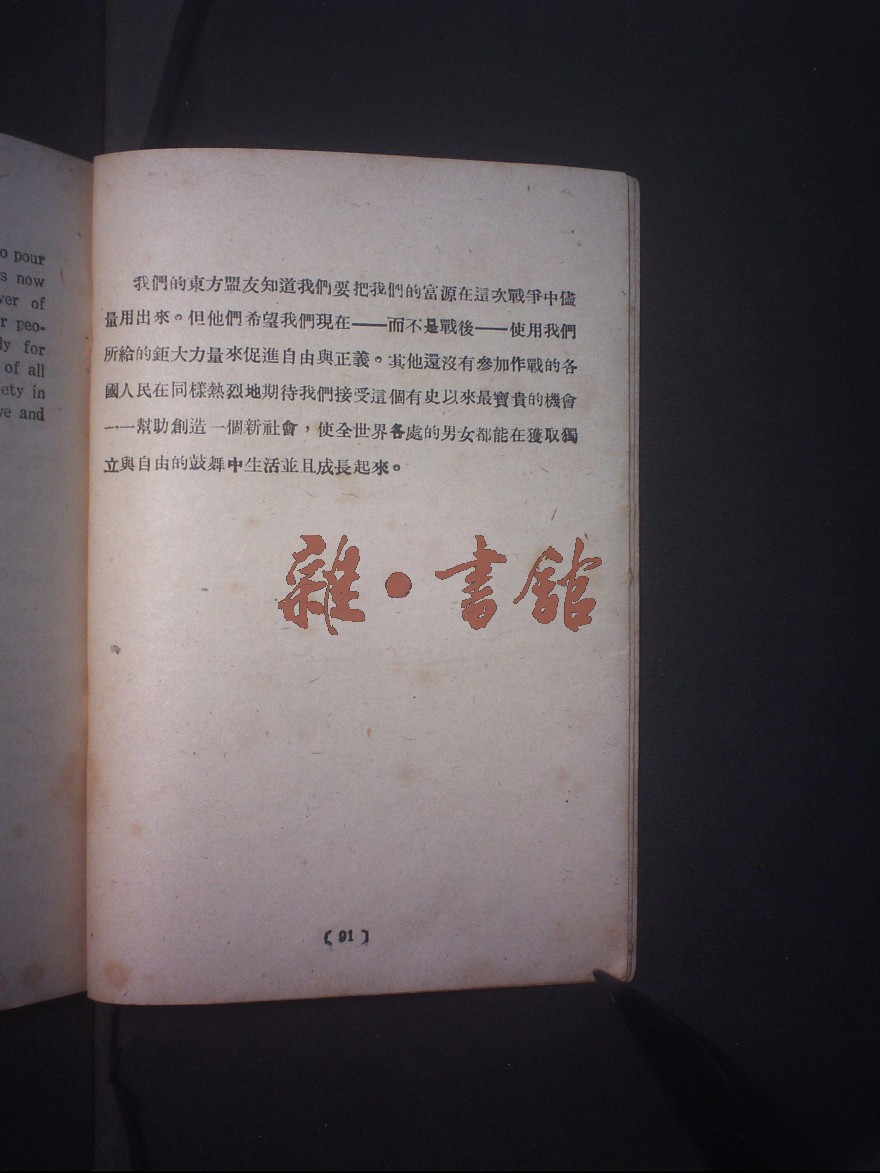 o pour
s now
ver of
r peo-
ly for
of all
iety in
ve and
我們的東方盟友知道我們要把我們的富源在這次戰爭中儘
量用出來。但他們希望我們現在——而不是戰後——使用我們
所給的鉅大力量來促進自由與正義。其他還沒有參加作戰的各
國人民在同樣熱烈地期待我們接受這個有史以來最寶貴的機會
——幫助創造一個新社會，使全世界各處的男女都能在獲取獨
立與自由的鼓舞中生活並且成長起來。
雜·書館
(91)